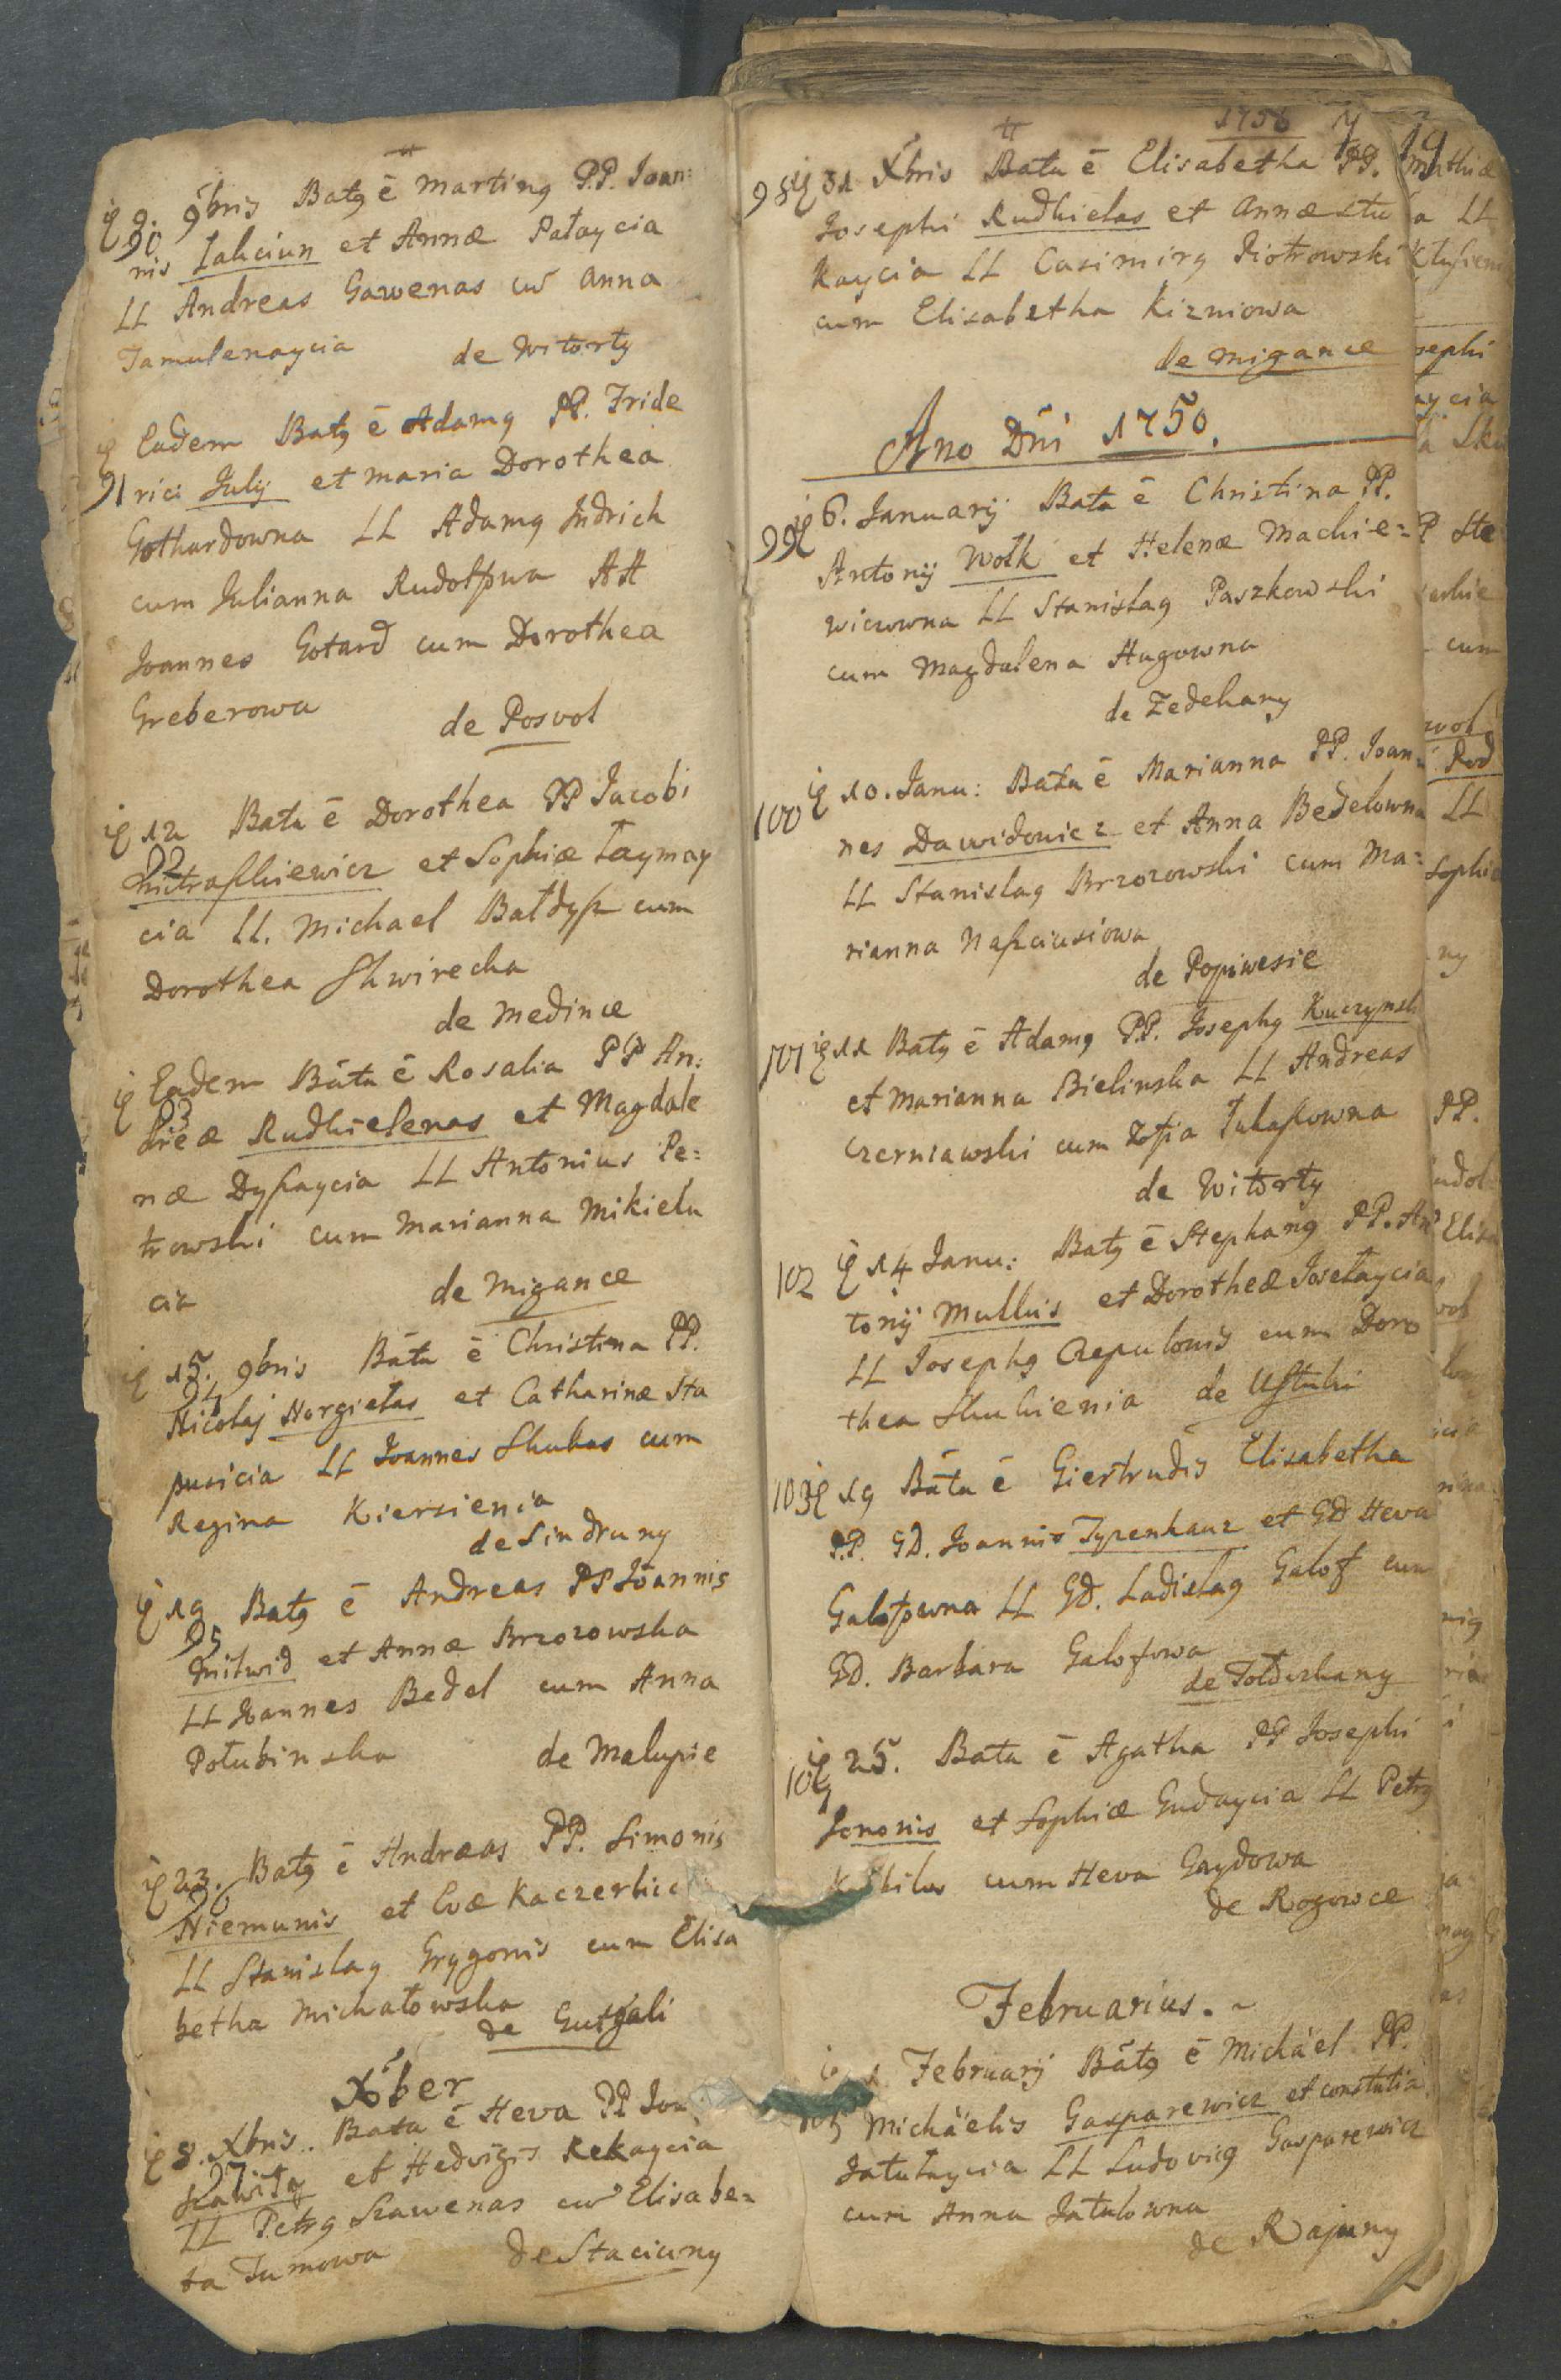 9. 9bris Batg ē Marting P.P. Ioan:
90
nis Iakciun et Annæ Pataycia
LL Andreas Gawenas cū Anna
Tamulenaycia de Witorty
Eadem Batg ē Adamg PP. Fride
91 rici Julij et Maria Dorothea
Gothardowna LL Adamg Jndrich
cum Julianna Rudolfowa AA
Joannes Gotard cum Dorothea
Greberowa de Posvol
12 Bata ē Dorothea PP Jacobi
92
et Sophiæ Taymay
cia LL. Michael cum
Dorothea Skwirecka
de Medince
Eadem Bāta ē Rosalia PP An:
93
dreæ Rudkielenas et Magdale
næ LL Antonius Pe=
trowski cum Marianna Mikielu
cia de Migance
15. 9bris Bāta ē Christina PP.
94
Nicolaj Norgiełas et Catharinæ Sta
pusicia LL Joannes Skukas cum
Regina Kiersienia
de Sindruny
19 Batg ē Andreas PP Joannis
95
et Annæ Brzozowska
LL Joannes Bedel cum Anna
Połubinska de Malupie
23. Batg ē Andreas PP. Simonis
96
Niemunis et Evæ
LL Stanislag Grygonis cum Elisa
betha Michałowska
de
Xber
8. Xbris.. Bata ē Heva PP
97
et Hedvigis Rekaycia
LL Petrg Szawenas cū Elisabe=
ta Tumowa de Staciuny
19
98 31 Xbris Bata ē Elisabetha PP.
Josephi Rudkielas et Annæ Stu
kaycia LL Casimirg Piotrowski
cum Elisabetha Kizniowa
de Migance
Ano Dñi 1750.
99 6. Januarij Bata ē Christina PP.
Antonij Wołk et Helenæ Machie=
wiczowna LL Stanisłag Paszkowski
cum Magdalena Hugowna
de Zedekany
100 10. Janu: Bata ē Marianna PP. Ioan
nes Dawidowicz et Anna Bedelowna
LL Stanislag Brzozowski cum Ma=
rianna
de Popiwesie
101 11 Batg ē Adamg P.P. Josephg Kuczynsk
et Marianna Bielinska LL Andreas
Czerniawski cum Zofia
de Witorty
102 14 Janu: Batg ē Stephang PP. An
tonij Mulkis et Dorotheæ Joselaycia
LL Josephg Czepulonis cum Doro
thea Skukienia de
103 19 Bāta ē Giertrudis Elisabetha
P.P. GD. Joannis Tyzenhauz et GD Heva
Galofowna LL GD. Ladislag Galof cum
GD. Barbara Galofowa
de
104 25. Bata ē Agatha PP Josephi
Jononis et Sophiæ Gudaycia LL Petrg
cum Heva Gaydowa
de Rozowce
Februarius.
1 Februarij Bātg ē Michäel PP.
105 Michäelis Gasparewicz et constātia
Jatułaycia LL Ludovicg Gasparewicz
cum Anna Jatulowna
de Rajuny